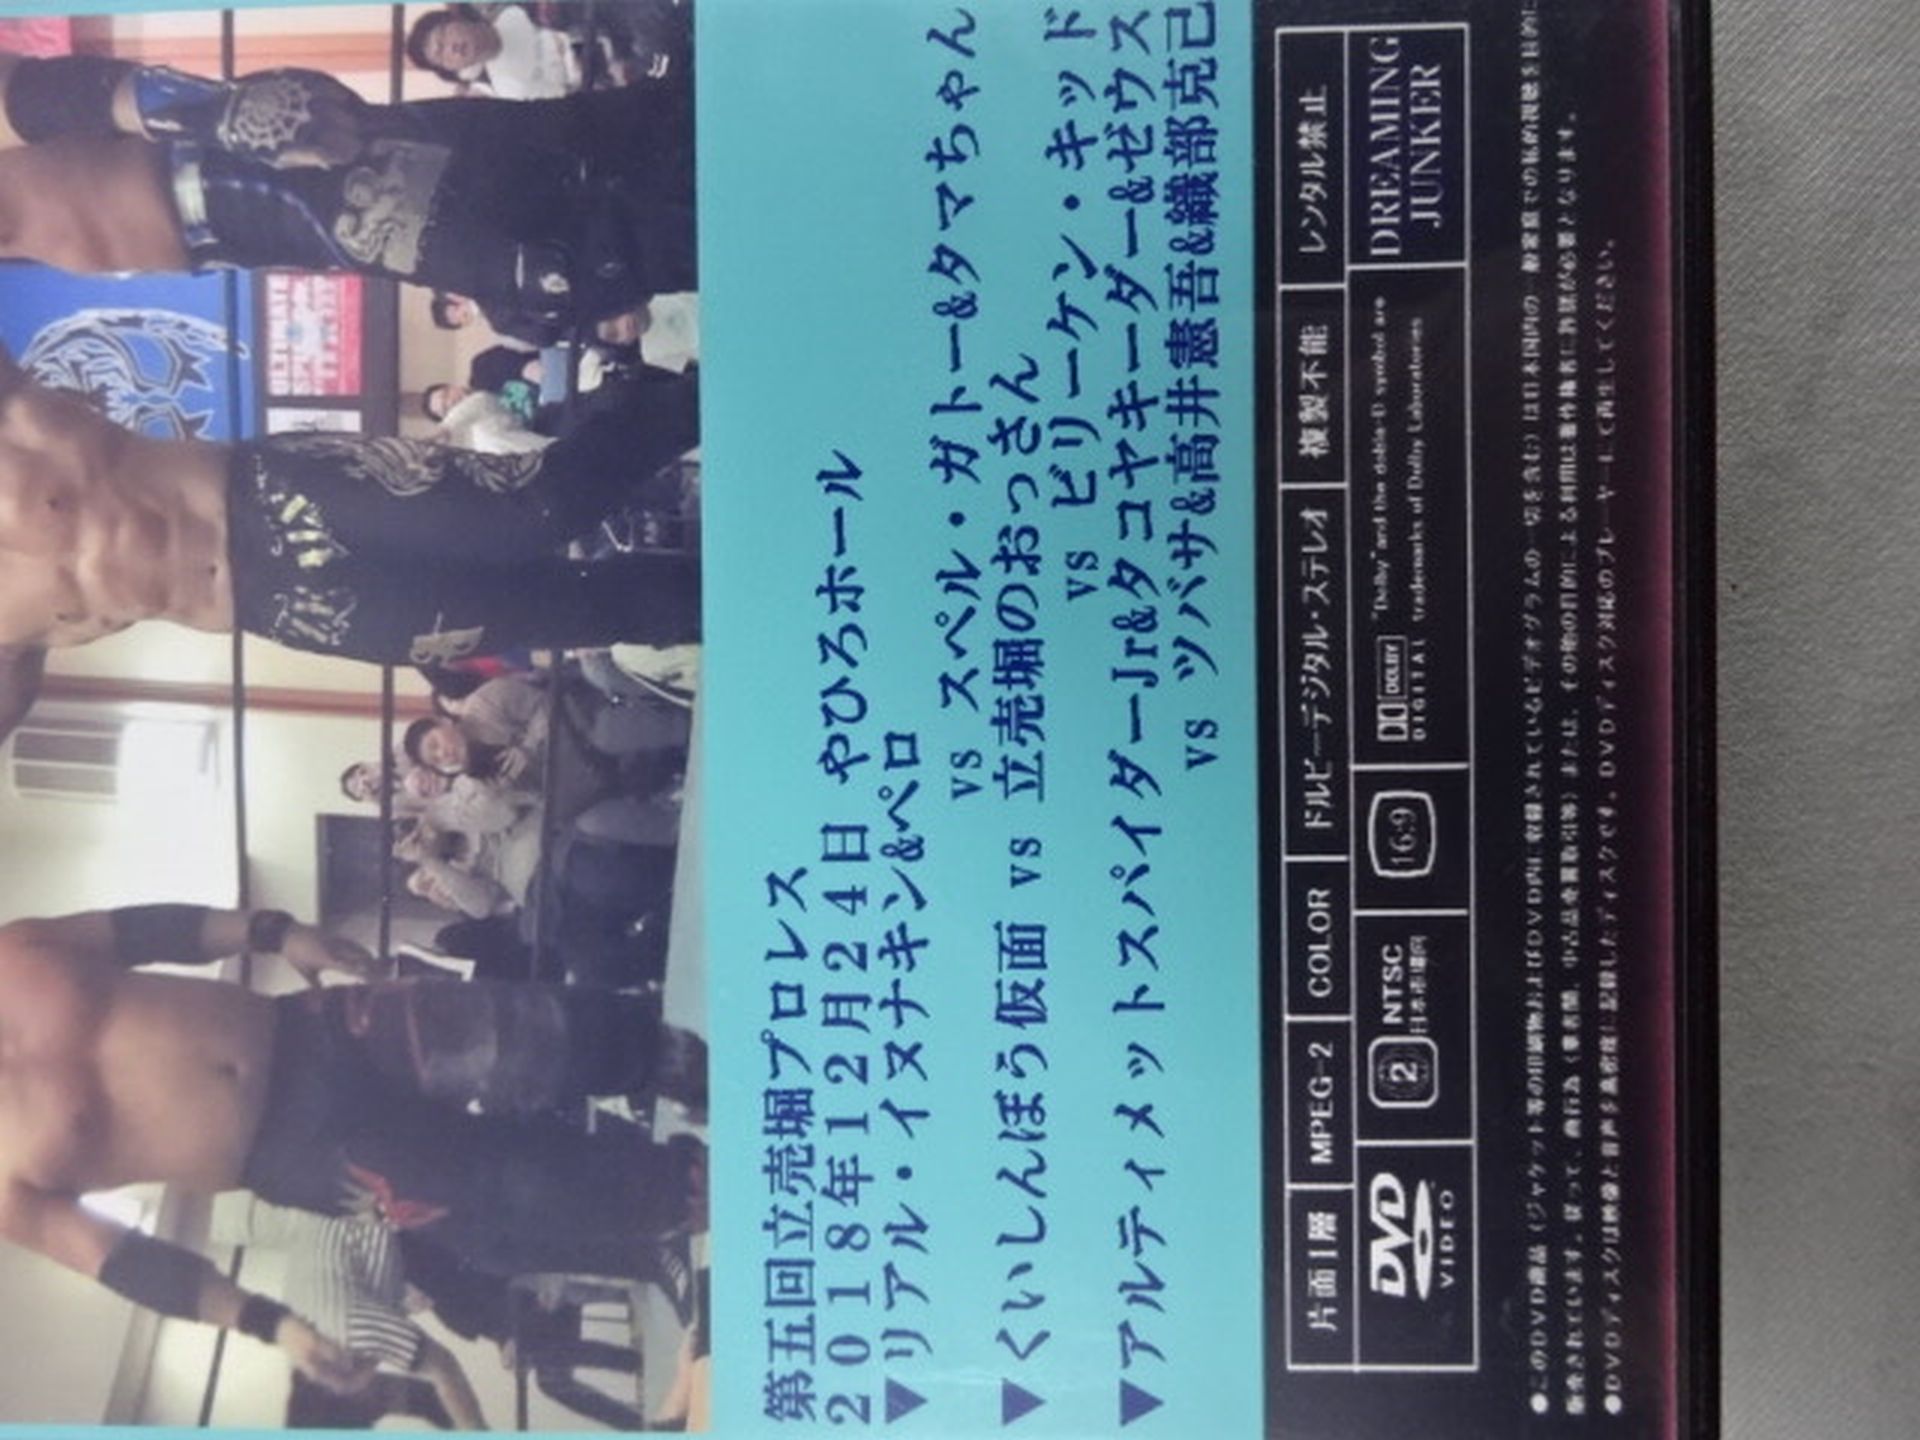 第五回立売堀プロレス
2018年12月24日 やひろホール
▼リアル・イヌナキン&ペロ
vs スペル・ガトー&タマちゃん
▼くいしんぼう仮面 vs 立売堀のおっさん
vs ビリーケン・キッド
▼アルティメットスパイダーJr&タコヤキーダー&ゼウス
vs ツバサ&高井憲吾&織部克己
片面1層 MPEG-2 COLOR ドルビーデジタル・ステレオ 複製不能 レンタル禁止
DVD VIDEO
2 NTSC 日本市場向
16:9
DOLBY DIGITAL
"Dolby" and the doble-D symbol are
trademarks of Dolby Laboratories
DREAMING
JUNKER
●このDVD商品(ジャケット等の印刷物およびDVD内に収録されているビデオグラムの一切を含む)は日本国内の一般家庭での私的視聴を目的に
販売されています。従って、商行為(業者間、中古品売買取引等)または、その他の目的による利用は著作権者に許諾が必要となります。
●DVDディスクは映像と音声を高密度に記録したディスクです。DVDディスク対応のプレーヤーにて再生してください。